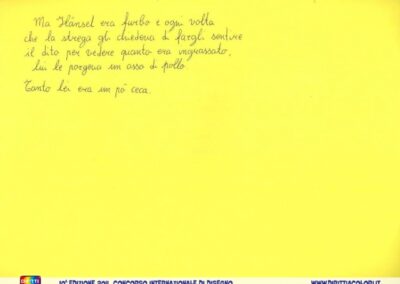 Ma Hänsel era furbo e ogni volta
che la strega gli chiedeva di fargli sentire
il dito per vedere quanto era ingrassato,
lui le porgeva un osso di pollo
Tanto lei era un pò ceca.
10ª EDIZIONE 2011 CONCORSO INTERNAZIONALE DI DISEGNO
WWW.DIRITTIACOLORI.IT